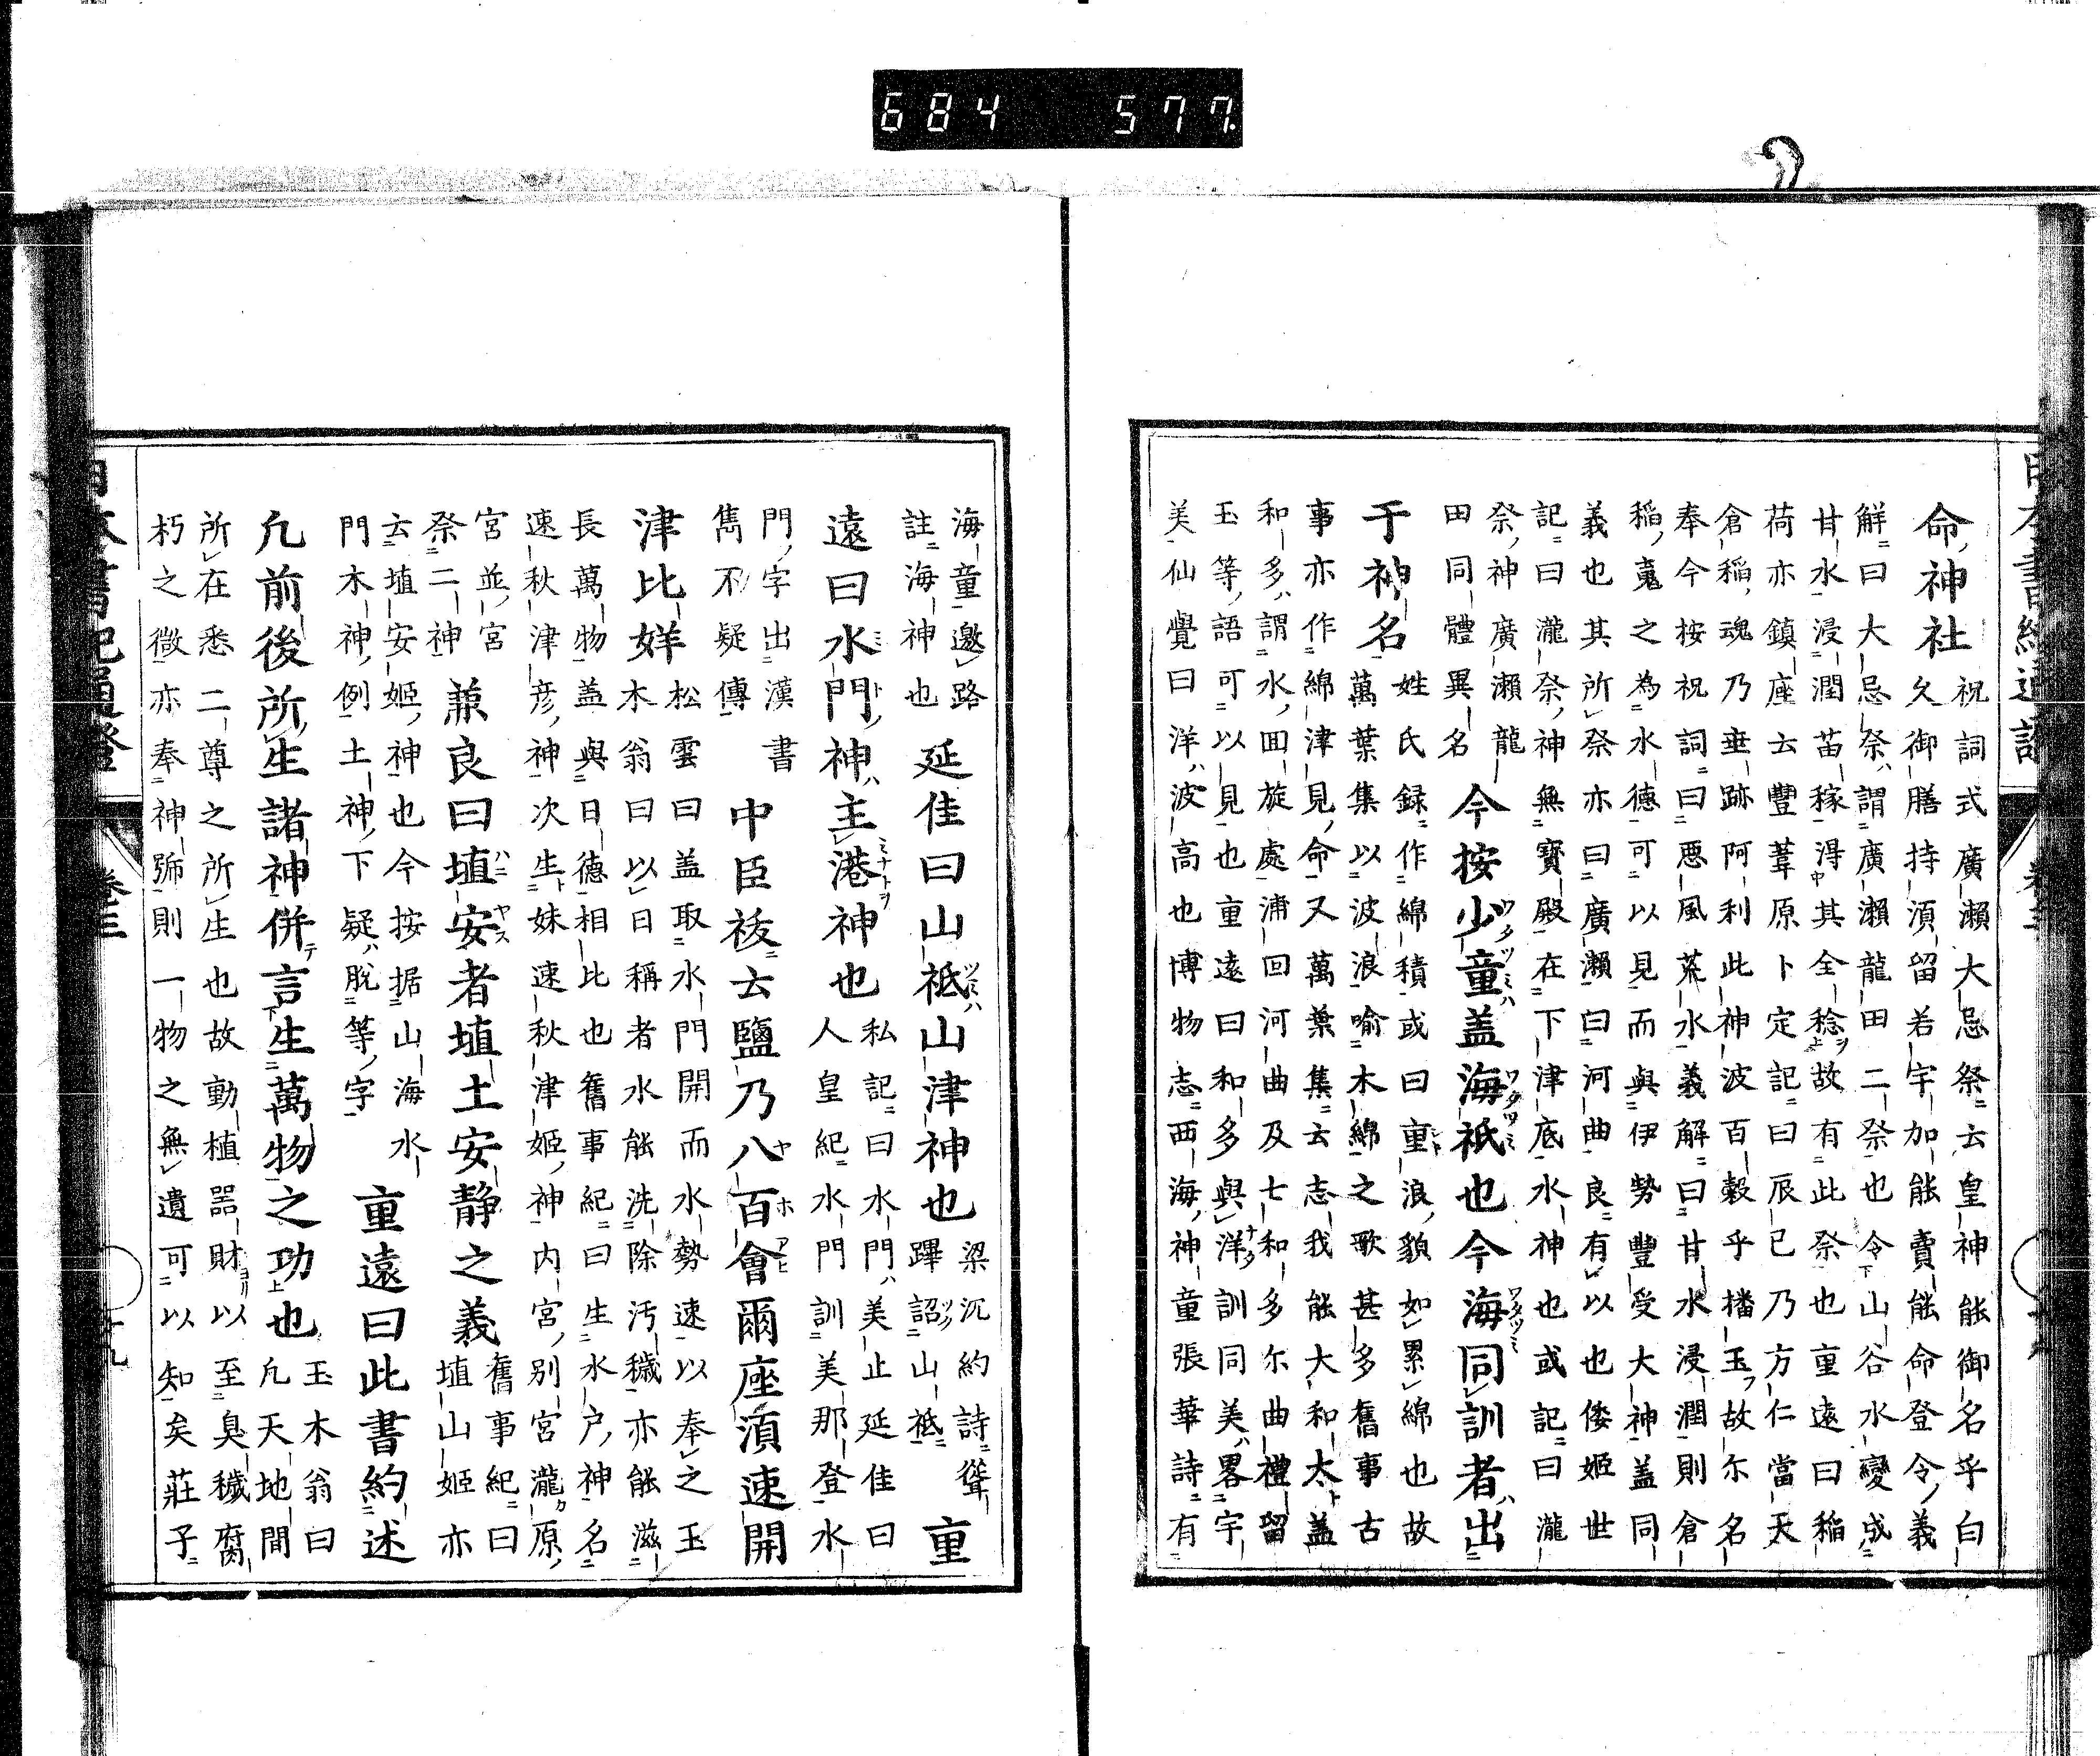 684 577
命神社
祝詞式廣瀬大忌祭云皇神能御名乎白
久御膳持須留若宇加能賣能命登令義
解曰大忌祭謂廣瀬龍田二祭也令山谷水變成
甘水浸潤苗稼淂其全稔故有此祭也重遠曰稲
荷亦鎮座云豐葦原卜定記曰辰巳乃方仁當天
倉稲魂乃垂跡阿利此神波百穀乎播玉故尓名
奉今按祝詞曰悪風荒水義解曰甘水浸潤則倉
稲䰟之為水德可以見而與伊勢豐受大神蓋同
義也其所祭亦曰廣瀬曰河曲良有以也倭姫世
記曰瀧祭神無寶殿在下津底水神也或記曰瀧
祭神廣瀬龍
田同體異名
今按少童蓋海祇也今海同訓者出
于神名
姓氏録作綿積或曰重浪貌如累綿也故
萬葉集以波浪喻木綿之歌甚多舊事古
事亦作綿津見命又萬葉集云志我能大和太蓋
和多謂水回旋處浦回河曲及七和多尓曲禮留
玉等語可以見也重遠曰和多與洋訓同美畧宇
美仙覺曰洋波高也博物志西海神童張華詩有
海童邀路
註海神也
延佳曰山祗山津神也
梁沉約詩聳
蹕詔山祗
重
遠曰水門神主港神也
私記曰水門美止延佳曰
人皇紀水門訓美那登水
門字出漢書
雋不疑傳
中臣祓云鹽乃八百會爾座湏速開
津比姅
松雲曰蓋取水門開而水勢速以奉之玉
木翁曰以日稱者水能洗除汚穢亦能滋
長萬物蓋與日德相比也舊事紀曰生水戸神名
速秋津彦神次生妹速秋津姫神内宮別宮瀧原
宮並宮
祭二神
兼良曰埴安者埴土安静之義
舊事紀曰
埴山姫亦
云埴安姫神也今按据山海水
門木神例土神下疑脱等字
重遠曰此書約述
凢前後所生諸神併言生萬物之功也
玉木翁曰
凢天地間
所在悉二尊之所生也故動植噐財以至臭穢腐
朽之微亦奉神號則一物之無遺可以知矣莊子
日本書紀通證
卷三